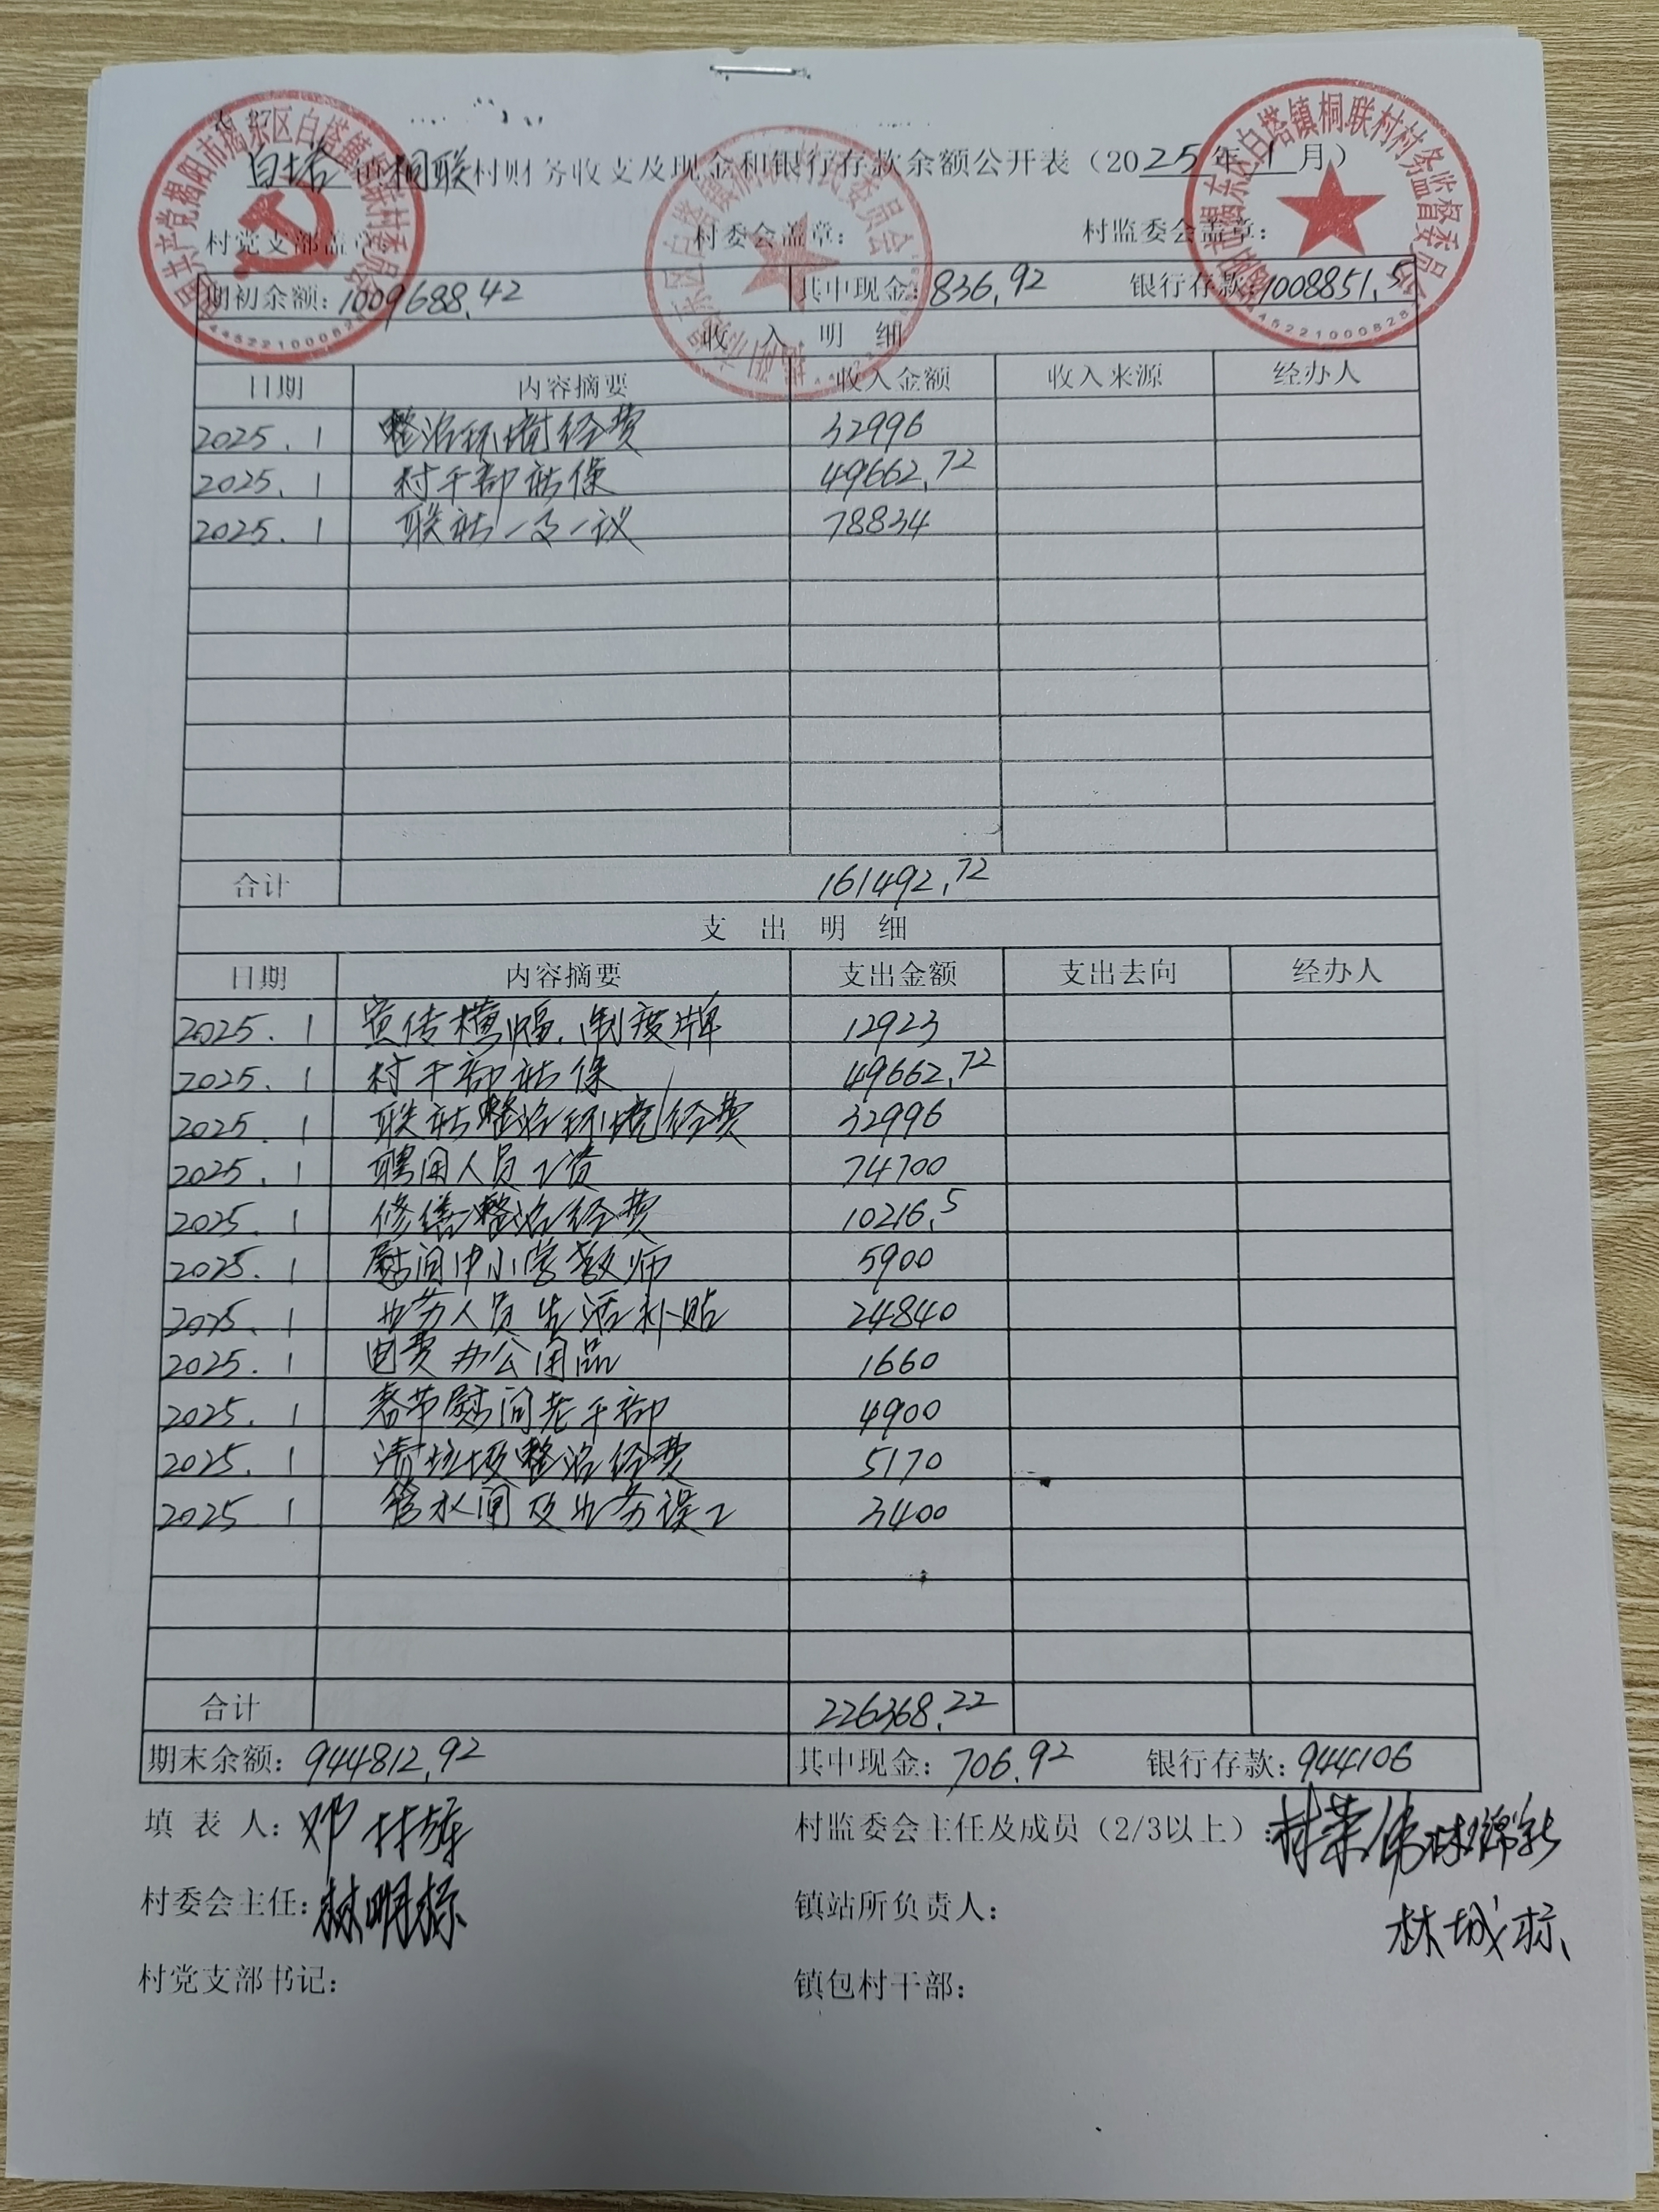 白塔镇桐联村财务收支及现金和银行存款余额公开表（2025年1月）
村党支部盖章 村委会盖章： 村监委会盖章：
期初余额：1009688.42 其中现金：836.92 银行存款：1008851.5
收 入 明 细
日期 内容摘要 收入金额 收入来源 经办人
2025.1 整治环境经费 32996
2025.1 村干部社保 49662.72
2025.1 联社一事一议 78834
合计 161492.72
支 出 明 细
日期 内容摘要 支出金额 支出去向 经办人
2025.1 宣传横幅、制度牌 12923
2025.1 村干部社保 49662.72
2025.1 联社整治环境经费 32996
2025.1 聘用人员工资 74700
2025.1 修缮整治经费 10216.5
2025.1 慰问中小学教师 5900
2025.1 业务人员生活补贴 24840
2025.1 电费办公用品 1660
2025.1 春节慰问老干部 4900
2025.1 清垃圾整治经费 5170
2025.1 管水闸及业务误工 3400
合计 226368.22
期末余额：944812.92 其中现金：706.92 银行存款：944106
填 表 人：邓 村监委会主任及成员（2/3以上）：
村委会主任：林明标 镇站所负责人：
林城标
村党支部书记： 镇包村干部：